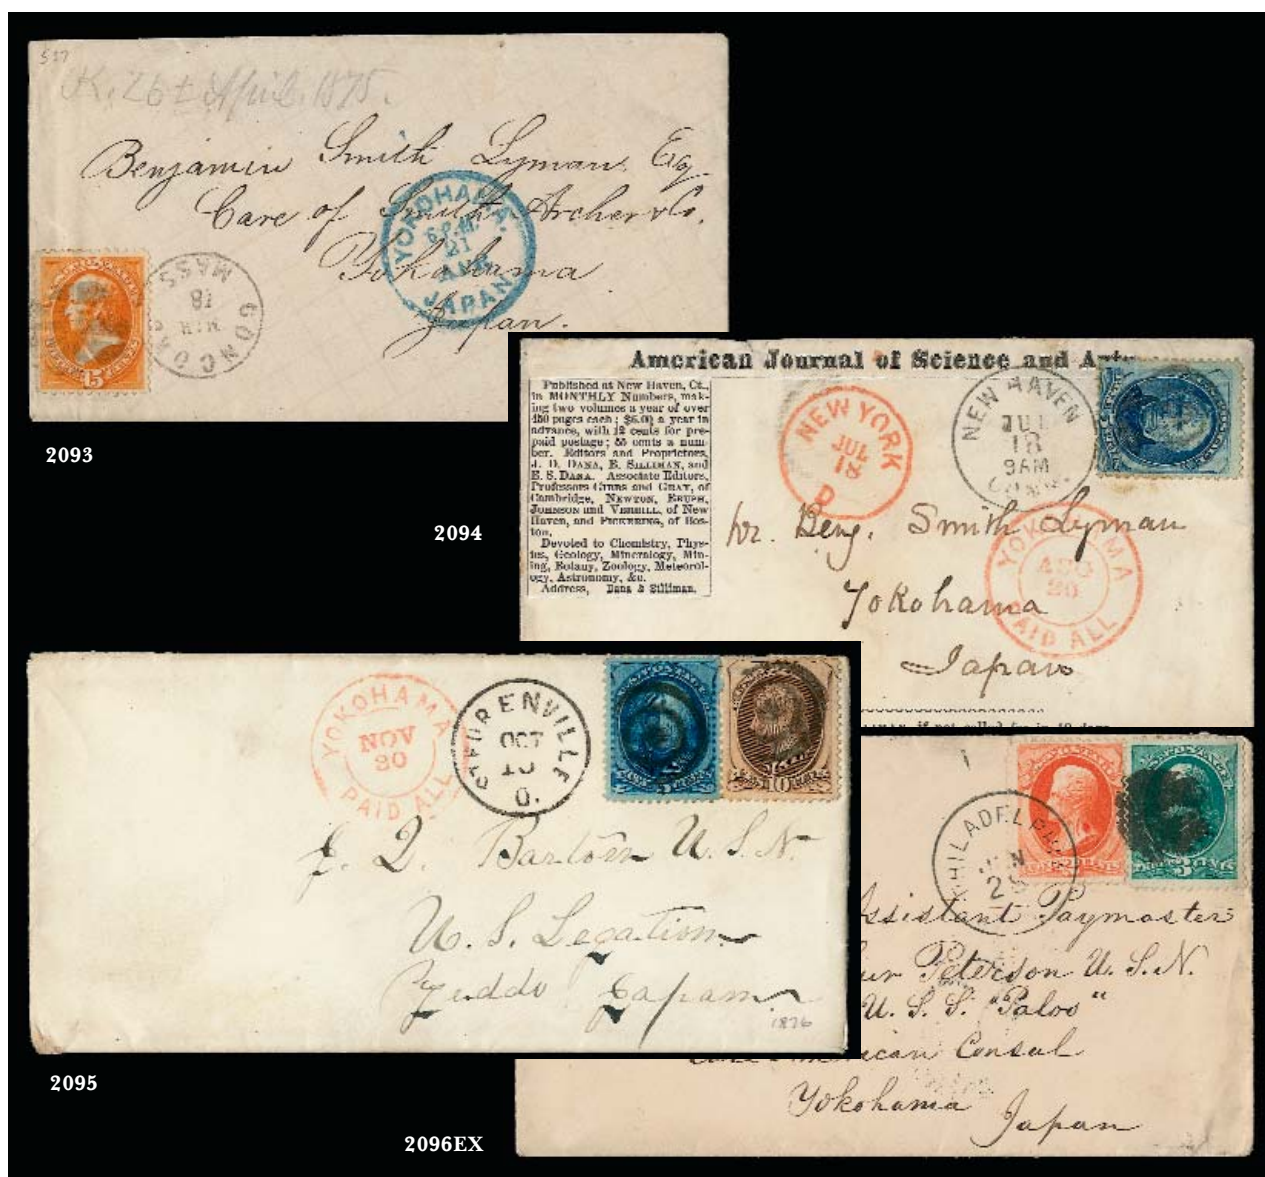 537
K. 26t April. 1875.
Benjamin Smith Lyman, Esq
Care of Smith Archer & Co.
Yokohama
Japan.
YOKOHAMA.
21
JAPAN.
MASS
18
MAR
CONCOR
15
2093
American Journal of Science and Arts
Published at New Haven, Ct.,
in MONTHLY Numbers, mak-
ing two volumes a year of over
450 pages each; $6.00 a year in
advance, with 12 cents for pre-
paid postage; 55 cents a num-
ber. Editors and Proprietors,
J. D. DANA, B. SILLIMAN, and
E. S. DANA. Associate Editors,
Professors GIBBS and GRAY, of
Cambridge, NEWTON, BRUSH,
JOHNSON and VERRILL, of New
Haven, and PICKERING, of Bos-
ton.
Devoted to Chemistry, Phys-
ics, Geology, Mineralogy, Min-
ing, Botany, Zoology, Meteorol-
ogy, Astronomy, &c.
Address, Dana & Silliman.
NEW YORK
JUL
18
NEW HAVEN
JUL
18
9AM
CONN.
Benj. Smith Lyman
Yokohama
Japan
YOKOHAMA
AUG
20
PAID ALL
if not called for in 10 days
2094
YOKOHAMA
NOV
20
PAID ALL
OCT
O.
5
10
J. Q. Barton U.S.N.
U.S. Legation
Yeddo Japan
1876
2095
PHILADELPH
JUN
2 CENTS
3 CENTS
Assistant Paymaster
ur Peterson U.S.N.
U.S.S. "Palos"
American Consul
Yokohama
Japan
2096EX